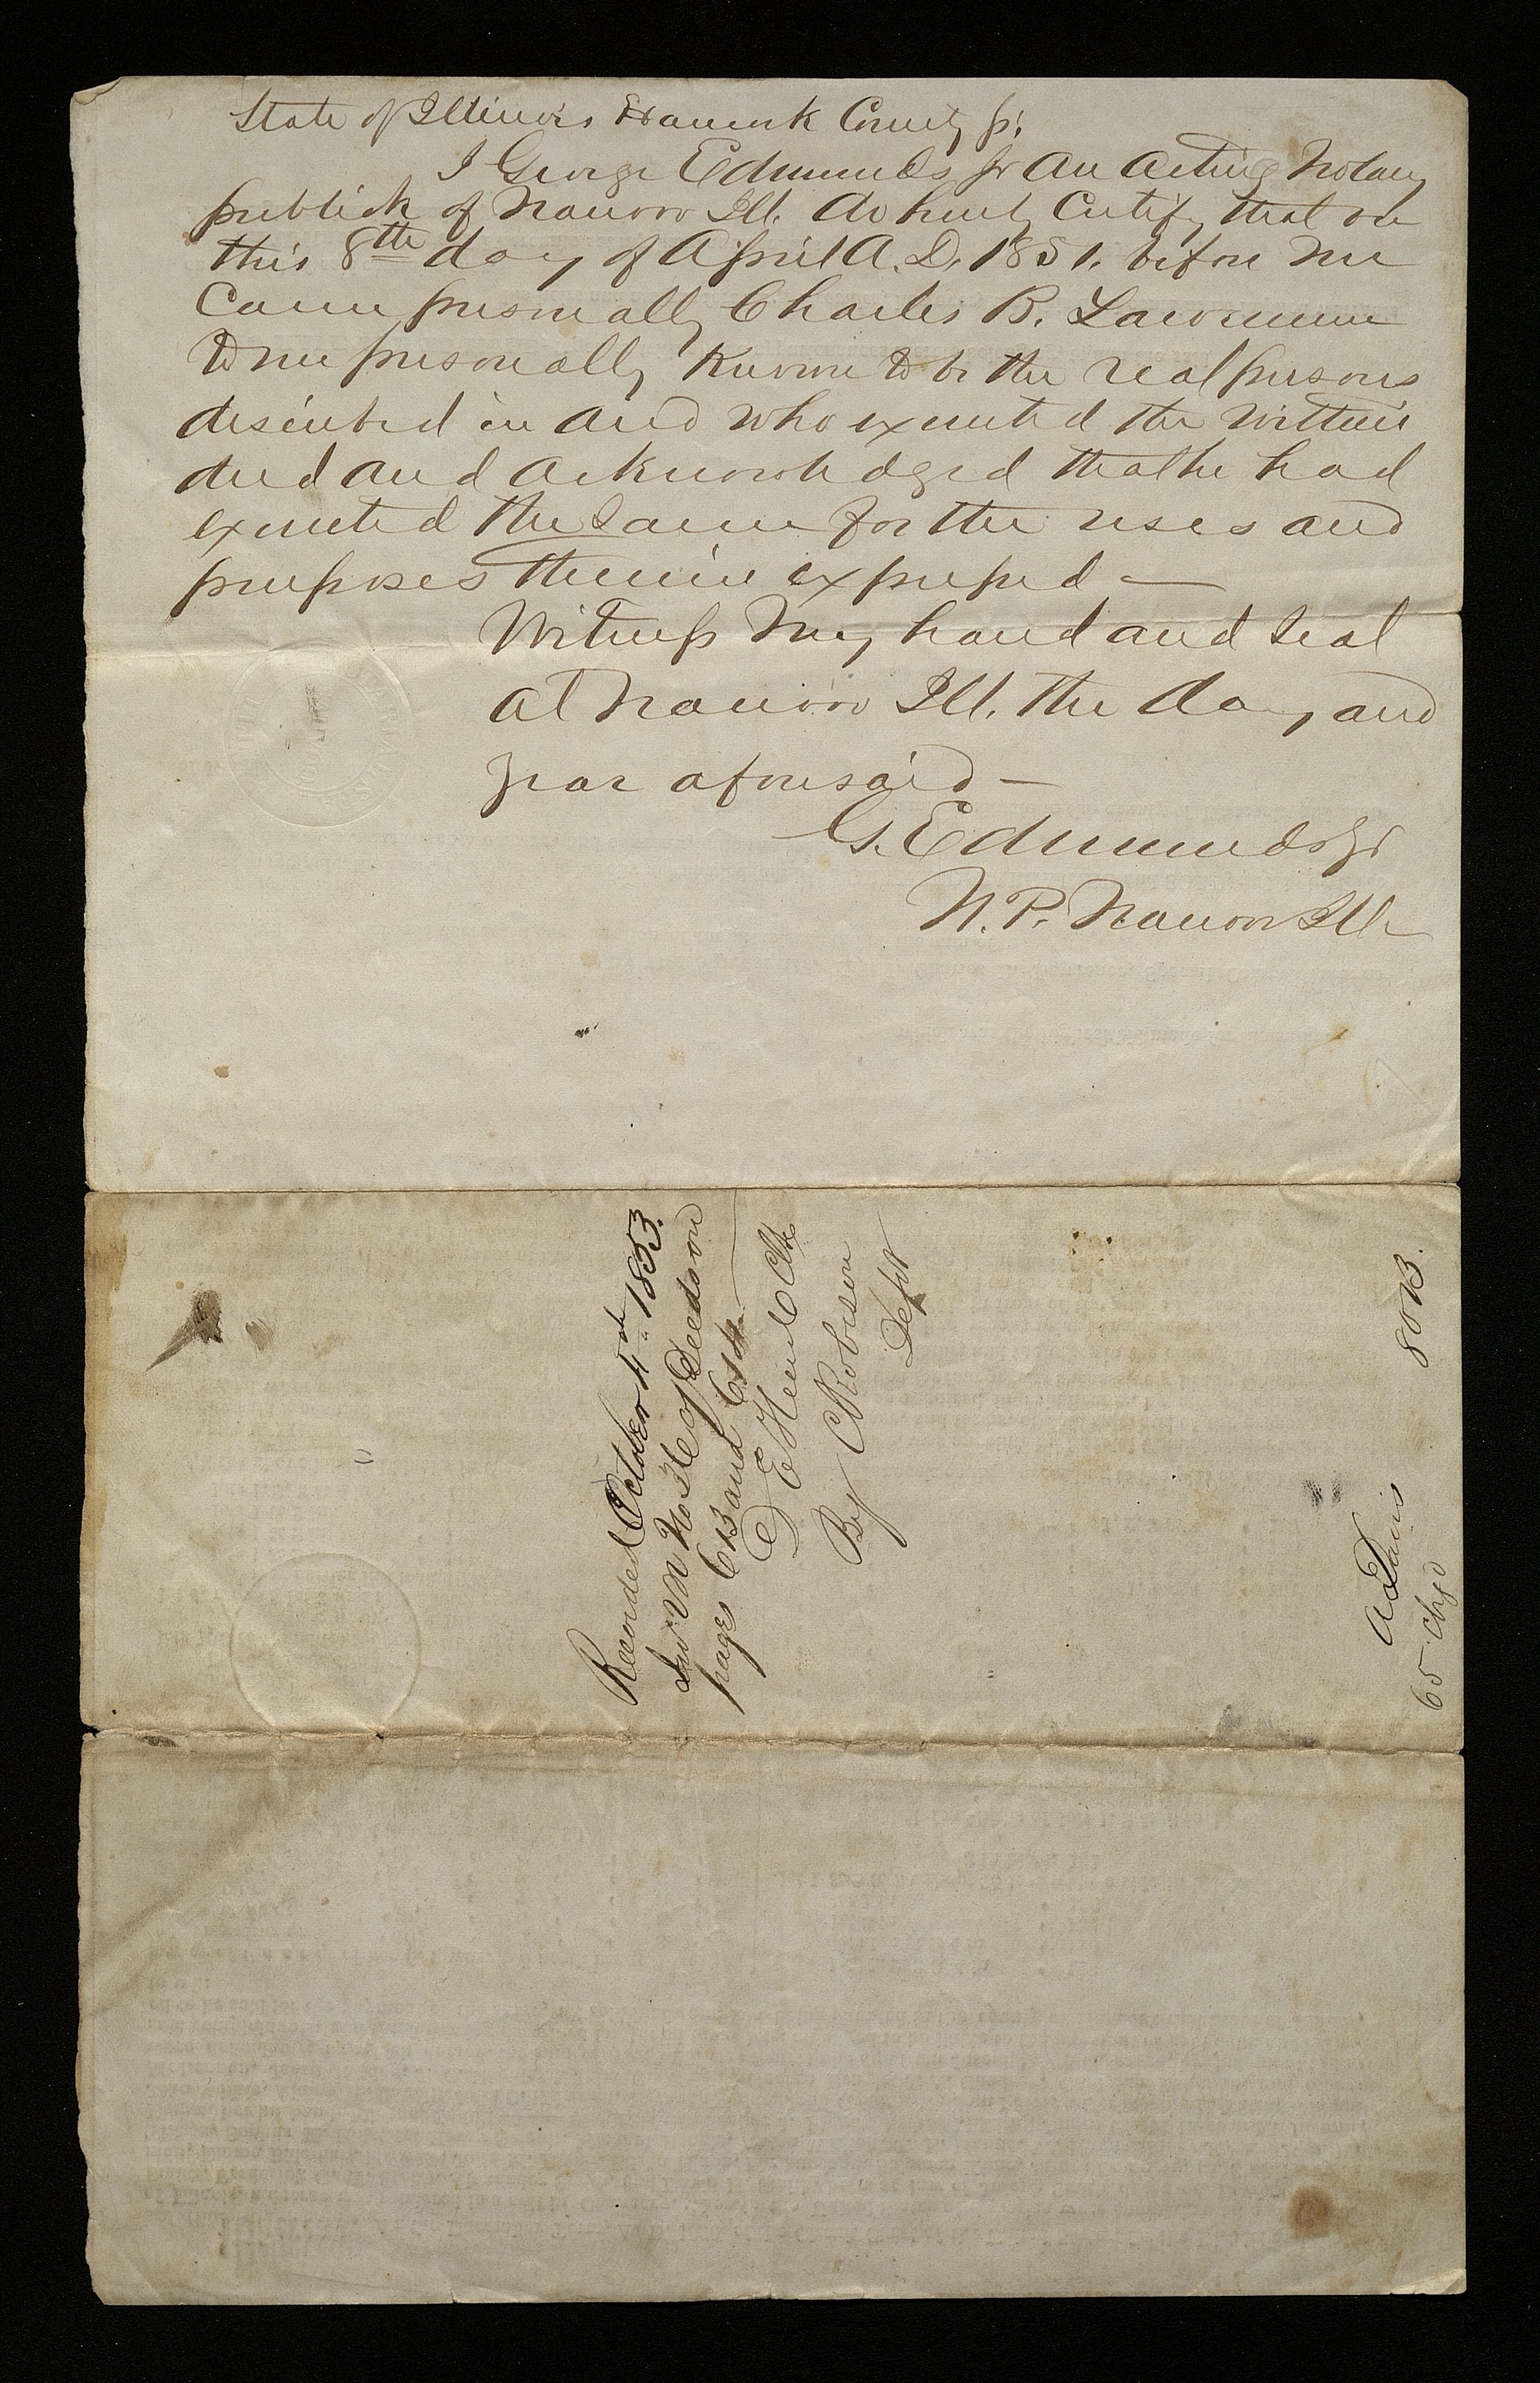 State of Illinois Hancock County ss.
I George Edmunds Jr an acting Notary
publick of Nauvoo Ill. do hereby Certify that on
this 8th day of April A.D. 1851. before me
Came personally Charles B. Lawrence
to me personally Known to be the real persons
described in and who executed the within
deed and acknowledged that he had
executed the same for the uses and
purposes therein expressed —
Witness my hand and seal
at Nauvoo Ill. the day and
year aforesaid —
G. Edmunds Jr
N. P. Nauvoo Ill
Recorded October 4th 1853.
In of Deeds on
pages 613 and 614
Clk
By C Robison
Dept
80 B.
A Davis
65 chgd